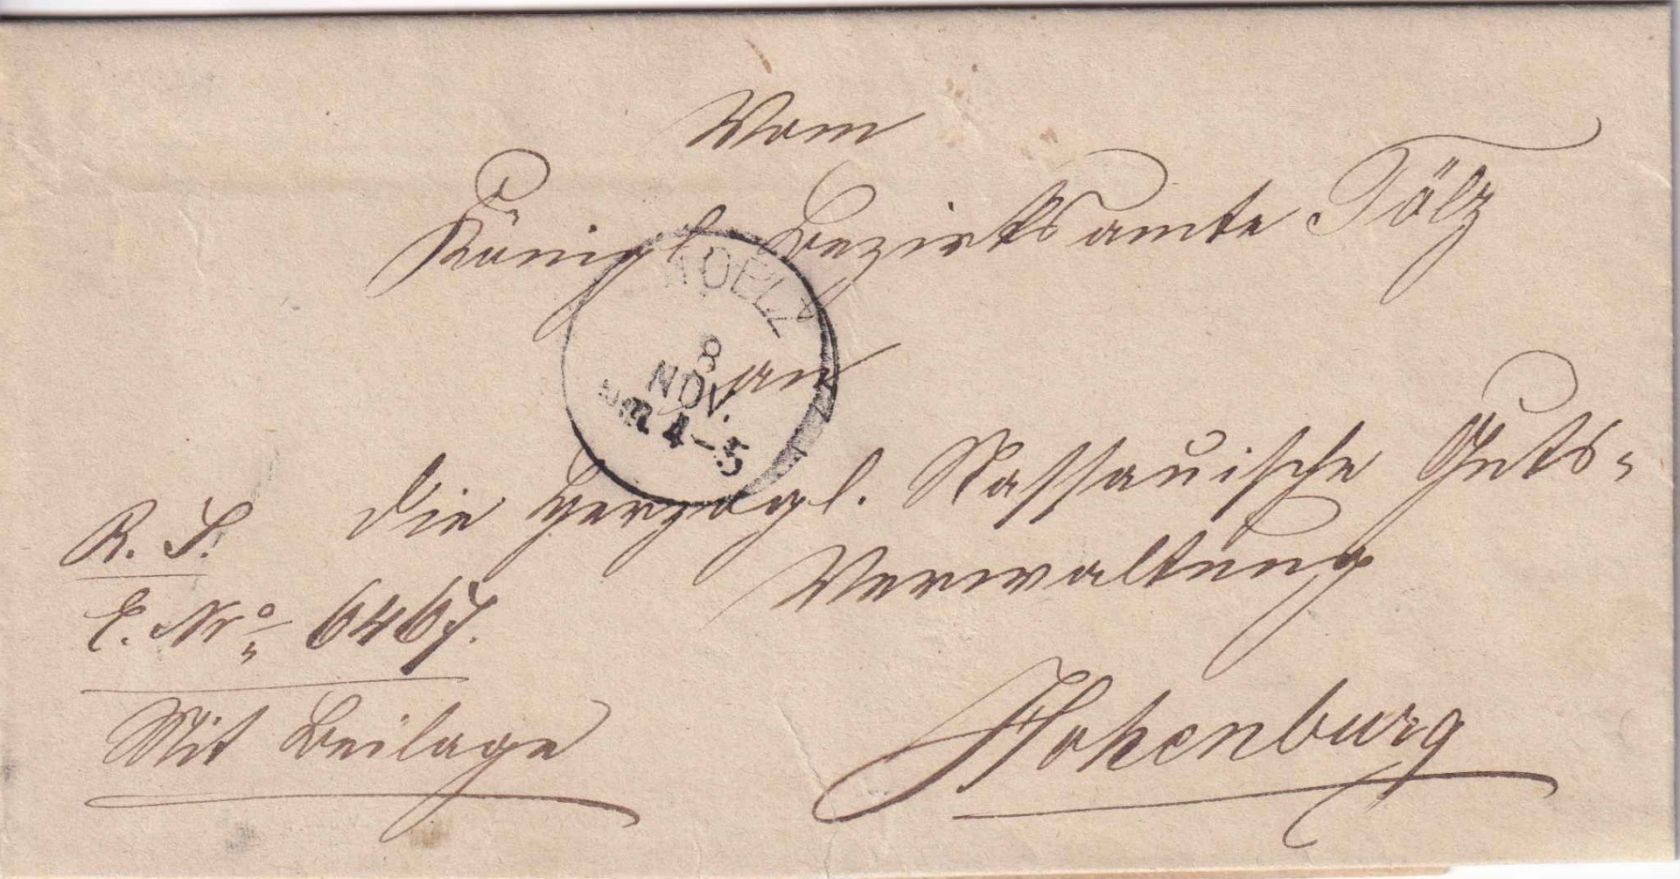 Vom
Königl. Bezirksamte Tölz
TOELZ
8
NOV.
4-5
an
die Herzogl. Nassauische Guts-
Verwaltung
Hohenburg
R. S.
E. Nro 6467.
Mit Beilage